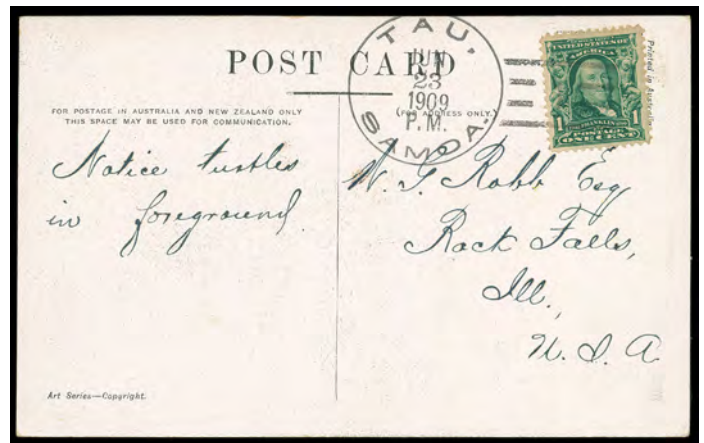 POST CARD
TAU,
JUN
23
1909
P.M.
SAMOA.
UNITED STATES OF
AMERICA
1 FRANKLIN 1
POSTAGE
ONE CENT
Printed in Australia
FOR POSTAGE IN AUSTRALIA AND NEW ZEALAND ONLY
THIS SPACE MAY BE USED FOR COMMUNICATION.
(FOR ADDRESS ONLY.)
Notice turtles
in foreground
W. G. Robb Esq
Rock Falls,
Ill.
U. S. A
Art Series—Copyright.